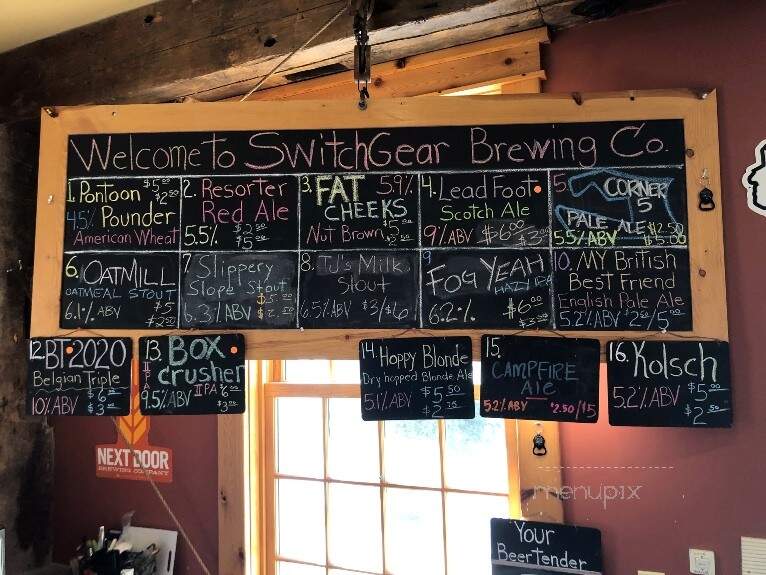 Welcome to SwitchGear Brewing Co.
1. Pontoon $5.00
$2.50
4.5% Pounder
American Wheat
2. Resorter
Red Ale
5.5% $2.50
$5.00
3. FAT 5.9%
CHEEKS
Nut Brown
4. Lead Foot
Scotch Ale
9% ABV $6.00 $3.00
5. CORNER
5
PALE ALE $2.50
5.5% ABV $5.00
6. OATMILL
OATMEAL STOUT $5
6.1% ABV $2.50
7 Slippery
Slope Stout
6.3% ABV
8. TJ's Milk
Stout
6.5% ABV $3/$6
9
FOG YEAH
HAZY IPA
6.2% $6.00
$3.00
10. MY British
Best Friend
English Pale Ale
5.2% ABV
12. BT2020
Belgian Triple
10% ABV $6
$3
13. BOX
crusher
IIPA
9.5% ABV
$3
14. Hoppy Blonde
Dry hopped Blonde Ale
5.1% ABV $5.50
$2.75
15.
CAMPFIRE
Ale
5.2% ABV $2.50/$5
16. Kolsch
5.2% ABV $5.00
$2.50
NEXT DOOR
BREWING COMPANY
menupix
Your
BeerTender